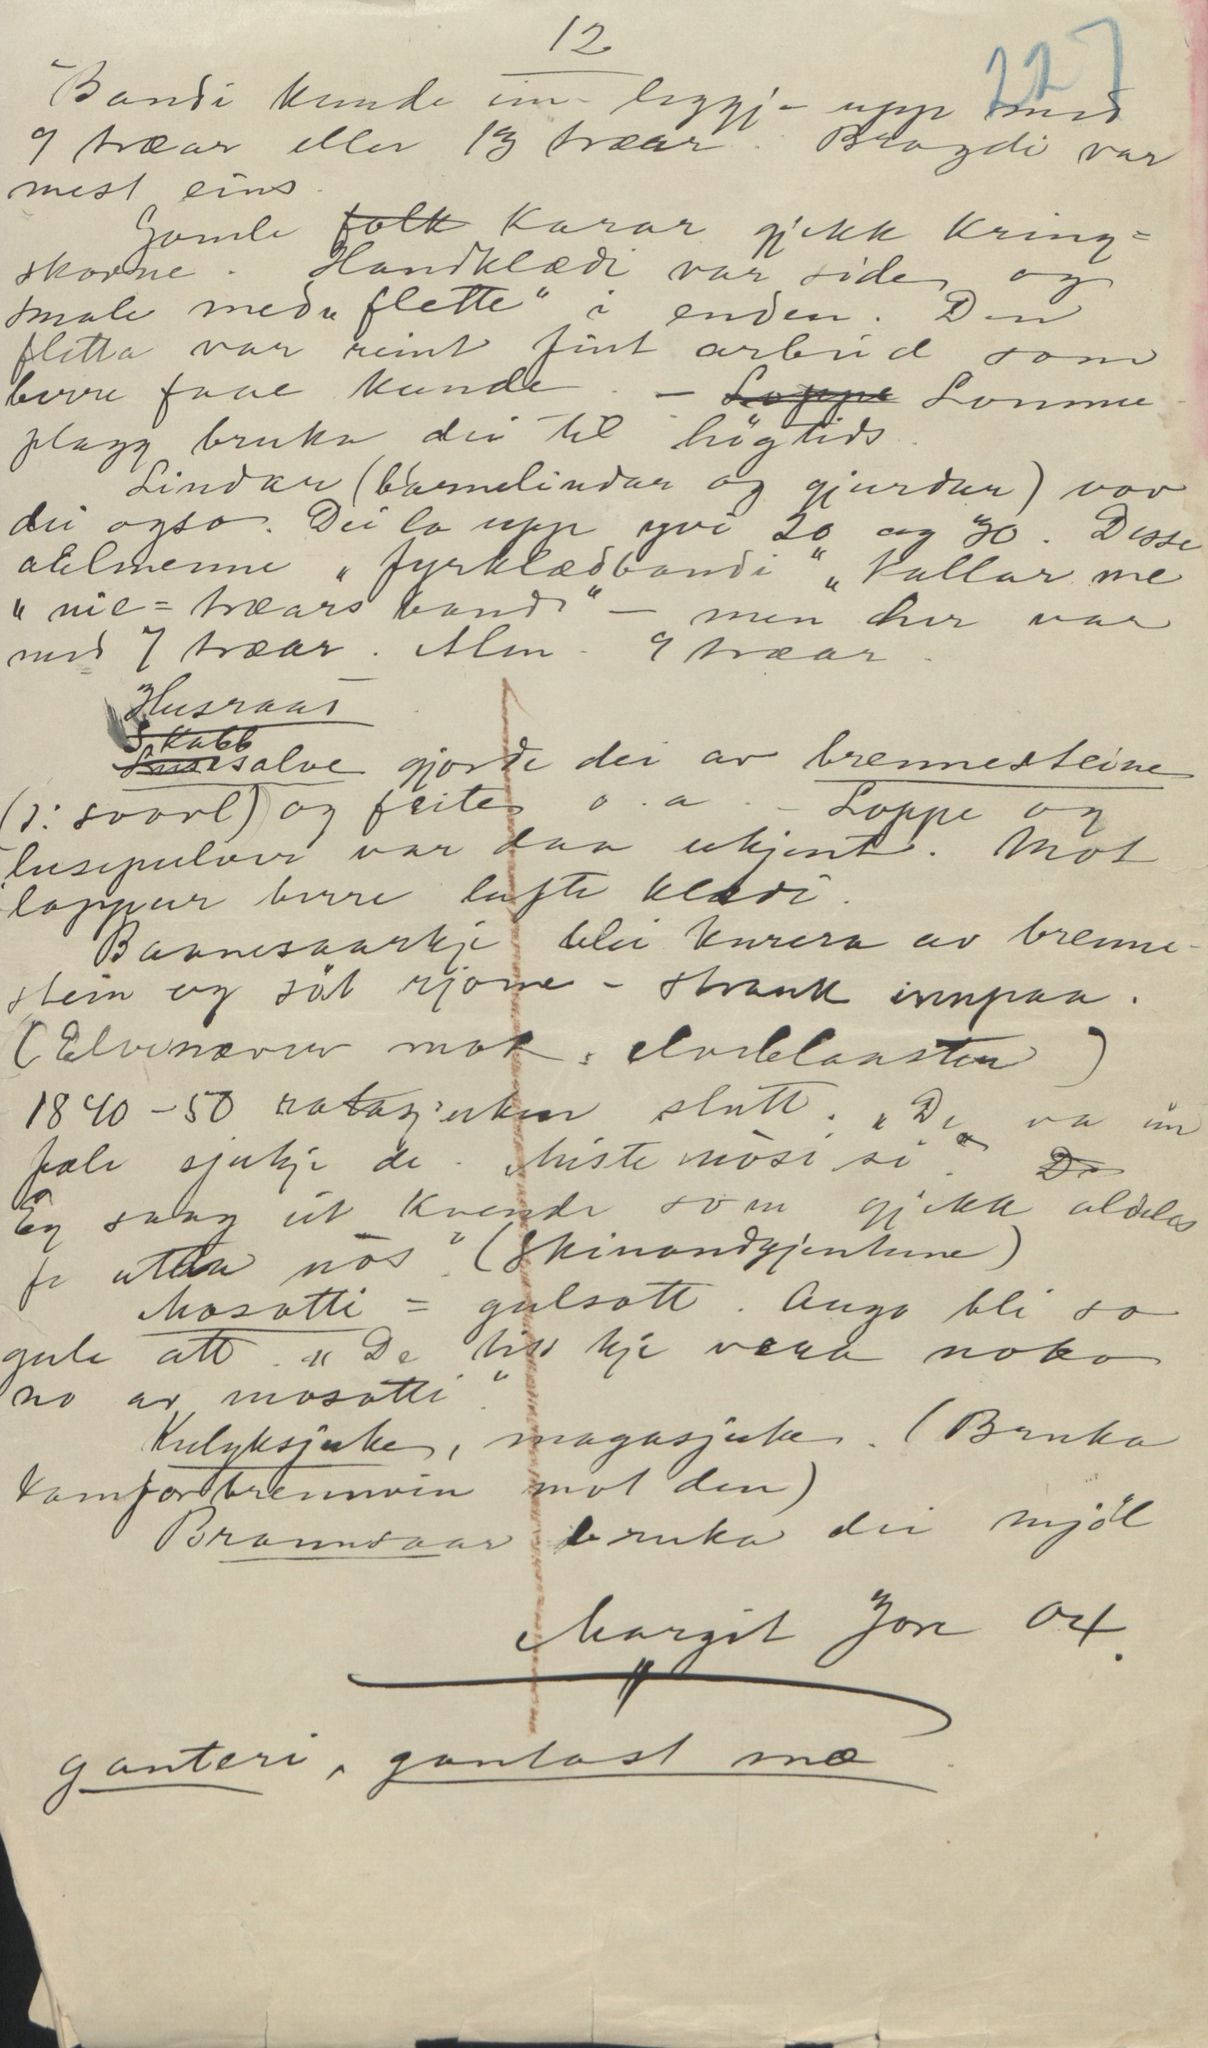 12
227
Bandi kunde ein leggje upp med
9 træar eller 13 træar. Bragdi var
mest eins.
Gamle folk karar gjekk kring=
skorne. Handklædi var side og
smale med „flette“ i enden. Den
fletta var reint fint arbeid som
berre faae kunde. – Loppe Lomme
plagg bruka dei til högtids.
Lindar (barnelindar og gjurdar) vov
dei ogso. Dei la upp yvi 20 og 30. Desse
allmenne „fyrklædbandi“ kallar me
„nie=træars band“ – men her var
med 7 træar. Alm. 9 træar.
Husraad
Skabb
Lusesalve gjorde dei av brennesteine
(ɔ: svovl) og feite o. a. – Loppe og
lusepulver var daa ukjent. Mot
loppur berre lufte klædi.
Baanesaarkje blei kurera av brenne-
stein og söt rjome – strauk innpaa.
(Elvenæver mot elveblaasten)
1840–50 ratasjuken slutt. „De va ein
fæle sjukje de. Miste nösi si“. De
Eg saag eit kvende som gjekk aldeles
fe utan nös“. (Skinandgjentune)
Mosotti = gulsott. Augo bli so
gule att. „De tis kje vera noko
no av mosotti“.
Kulyksjuke, magasjuke. (Bruka
kamforbrennvin mot den)
Brannsaar bruka dei mjöl
Margit Jore Ox.
ganteri, gantast mæ.